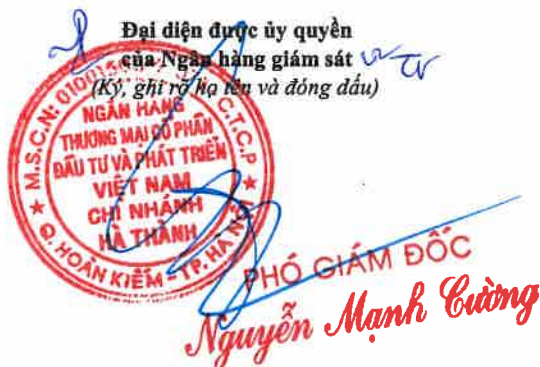 Đại diện được ủy quyền
của Ngân hàng giám sát
(Ký, ghi rõ họ tên và đóng dấu)
M.S.C.N: C.T.C.P
NGÂN HÀNG
THƯƠNG MẠI CỔ PHẦN
ĐẦU TƯ VÀ PHÁT TRIỂN
VIỆT NAM
CHI NHÁNH
HÀ THÀNH
Q. HOÀN KIẾM - TP. HÀ NỘI
PHÓ GIÁM ĐỐC
Nguyễn Mạnh Cường